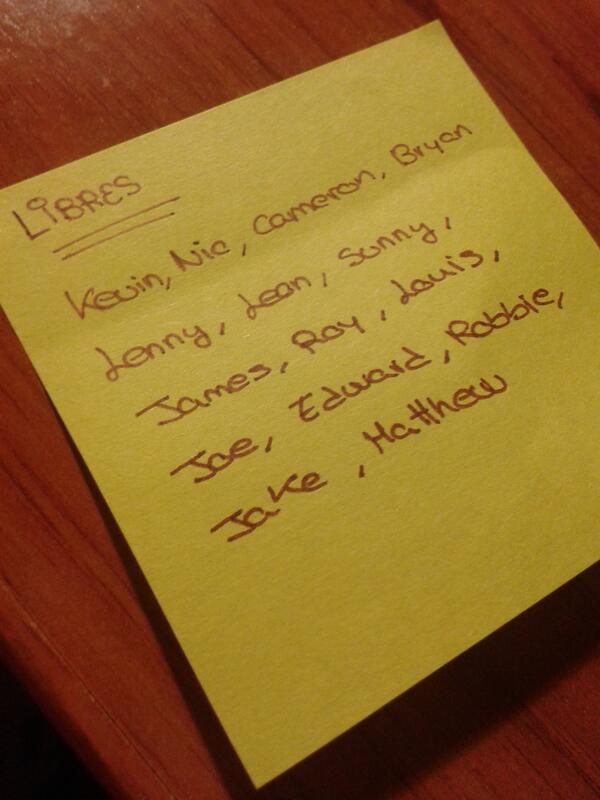 LIBRES
Kevin, Nic, Cameron, Bryan
Lenny, Lean, Sunny,
James, Roy, Louis,
Joe, Edward, Robbie,
Jake, Matthew